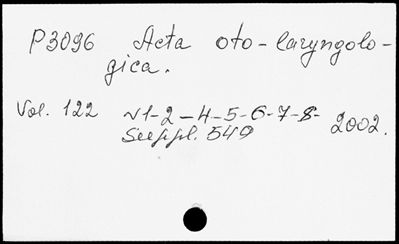 P3096 Acta oto-laryngolo-
gica.
Vol. 122 N1-2-4-5-6-7-8- 2002.
Suppl. 549